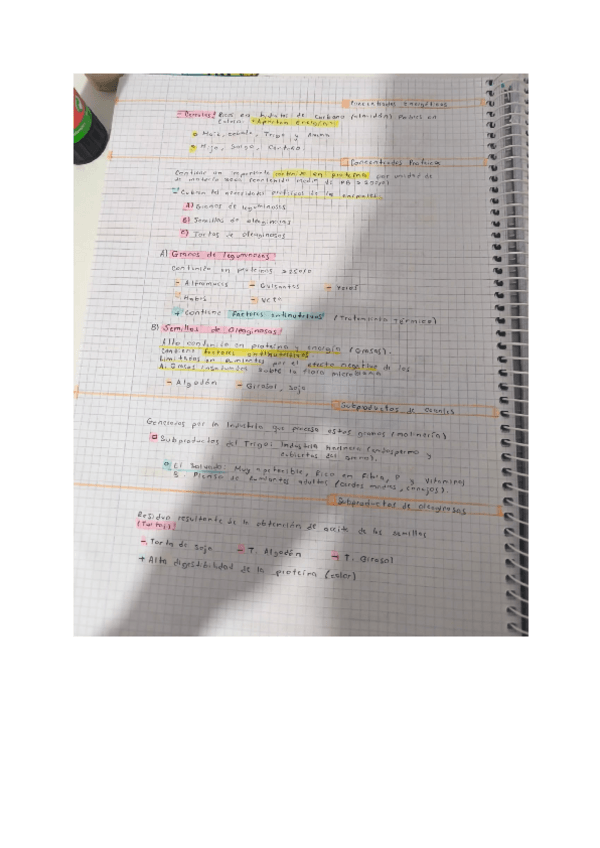 Concentrados energéticos
- Cereales: Ricos en hidratos de carbono (almidón) Pobres en
Calcio. +Aportan energía:
Maíz, cebada, Trigo y Avena
Mijo, Sorgo, Centeno.
Concentrados Proteicos
Contienen un importante contenido en proteína por unidad de
de materia seca
- Cubren las necesidades proteicas de los animales
A) Granos de leguminosas
B) Semillas de oleaginosas
C) Tortas de oleaginosas
A) Granos de leguminosas
Contenido en proteínas >25%
- Altramuces - Guisantes - Yeros
- Habas - Veza
+ Contiene factores antinutritivos (Tratamiento térmico)
B) Semillas de Oleaginosas:
Alto contenido en proteína y energía (Grasas).
Contienen factores antinutricionales
Limitados en rumiantes por el efecto negativo de los
A. Grasos insaturados sobre la flora microbiana
- Algodón - Girasol, Soja
Subproductos de cereales
Generados por la industria que procesa estos granos (molinería)
Subproductos del Trigo: Industria harinera (endospermo y
cubiertas del grano).
El Salvado: Muy apetecible, Rico en Fibra, P y Vitaminas
B. Pienso de rumiantes adultos (cerdas madres, conejos).
Subproductos de oleaginosas
Residuo resultante de la obtención de aceite de las semillas
(Tortas)
- Torta de Soja - T. Algodón - T. Girasol
+ Alta digestibilidad de la proteína (calor)